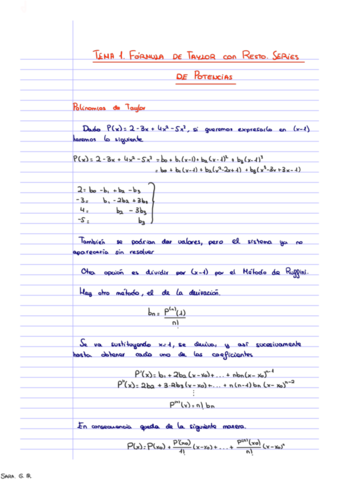 TEMA 1. FÓRMULA DE TAYLOR CON RESTO. SERIES
DE POTENCIAS
Polinomios de Taylor
Dado P(x) = 2 - 3x + 4x² - 5x³, si queremos expresarlo en (x-1)
tenemos lo siguiente
P(x) = 2 - 3x + 4x² - 5x³ = b₀ + b₁(x-1) + b₂(x-1)² + b₃(x-1)³
= b₀ + b₁(x-1) + b₂(x²-2x+1) + b₃(x³-3x²+3x-1)
2 = b₀ - b₁ + b₂ - b₃
-3 = b₁ - 2b₂ + 3b₃
4 = b₂ - 3b₃
-5 = b₃
También se podrían dar valores, pero el sistema ya no
aparecería sin resolver
Otra opción es dividir por (x-1) por el Método de Ruffini.
Hay otro método, el de la derivación.
bₙ = P⁽ⁿ⁾(1) / n!
Se va sustituyendo x=1, se deriva, y así sucesivamente
hasta obtener cada uno de los coeficientes
P'(x) = b₁ + 2b₂(x-x₀) + ... + nbₙ(x-x₀)ⁿ⁻¹
P''(x) = 2b₂ + 3·2b₃(x-x₀) + ... + n(n-1)bₙ(x-x₀)ⁿ⁻²
P⁽ⁿ⁾(x) = n! bₙ
En consecuencia queda de la siguiente manera.
P(x) = P(x₀) + P'(x₀)/1! (x-x₀) + ... + P⁽ⁿ⁾(x₀)/n! (x-x₀)ⁿ
SARA G. R.